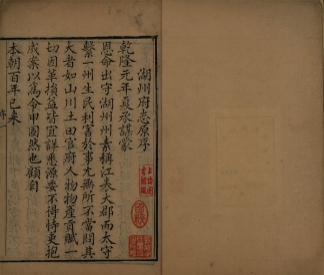 湖州府志原序
乾隆元年夏承謨蒙
恩命出守湖州湖州素稱江表大郡而太守
繫一州生民利害於事尤無所不當問其
大者如山川土田官府人物物產貢賦一
切因革損益皆宜詳悉源委不得特更抱
成案以為令申固然也顧自
本朝百年已來
序
一